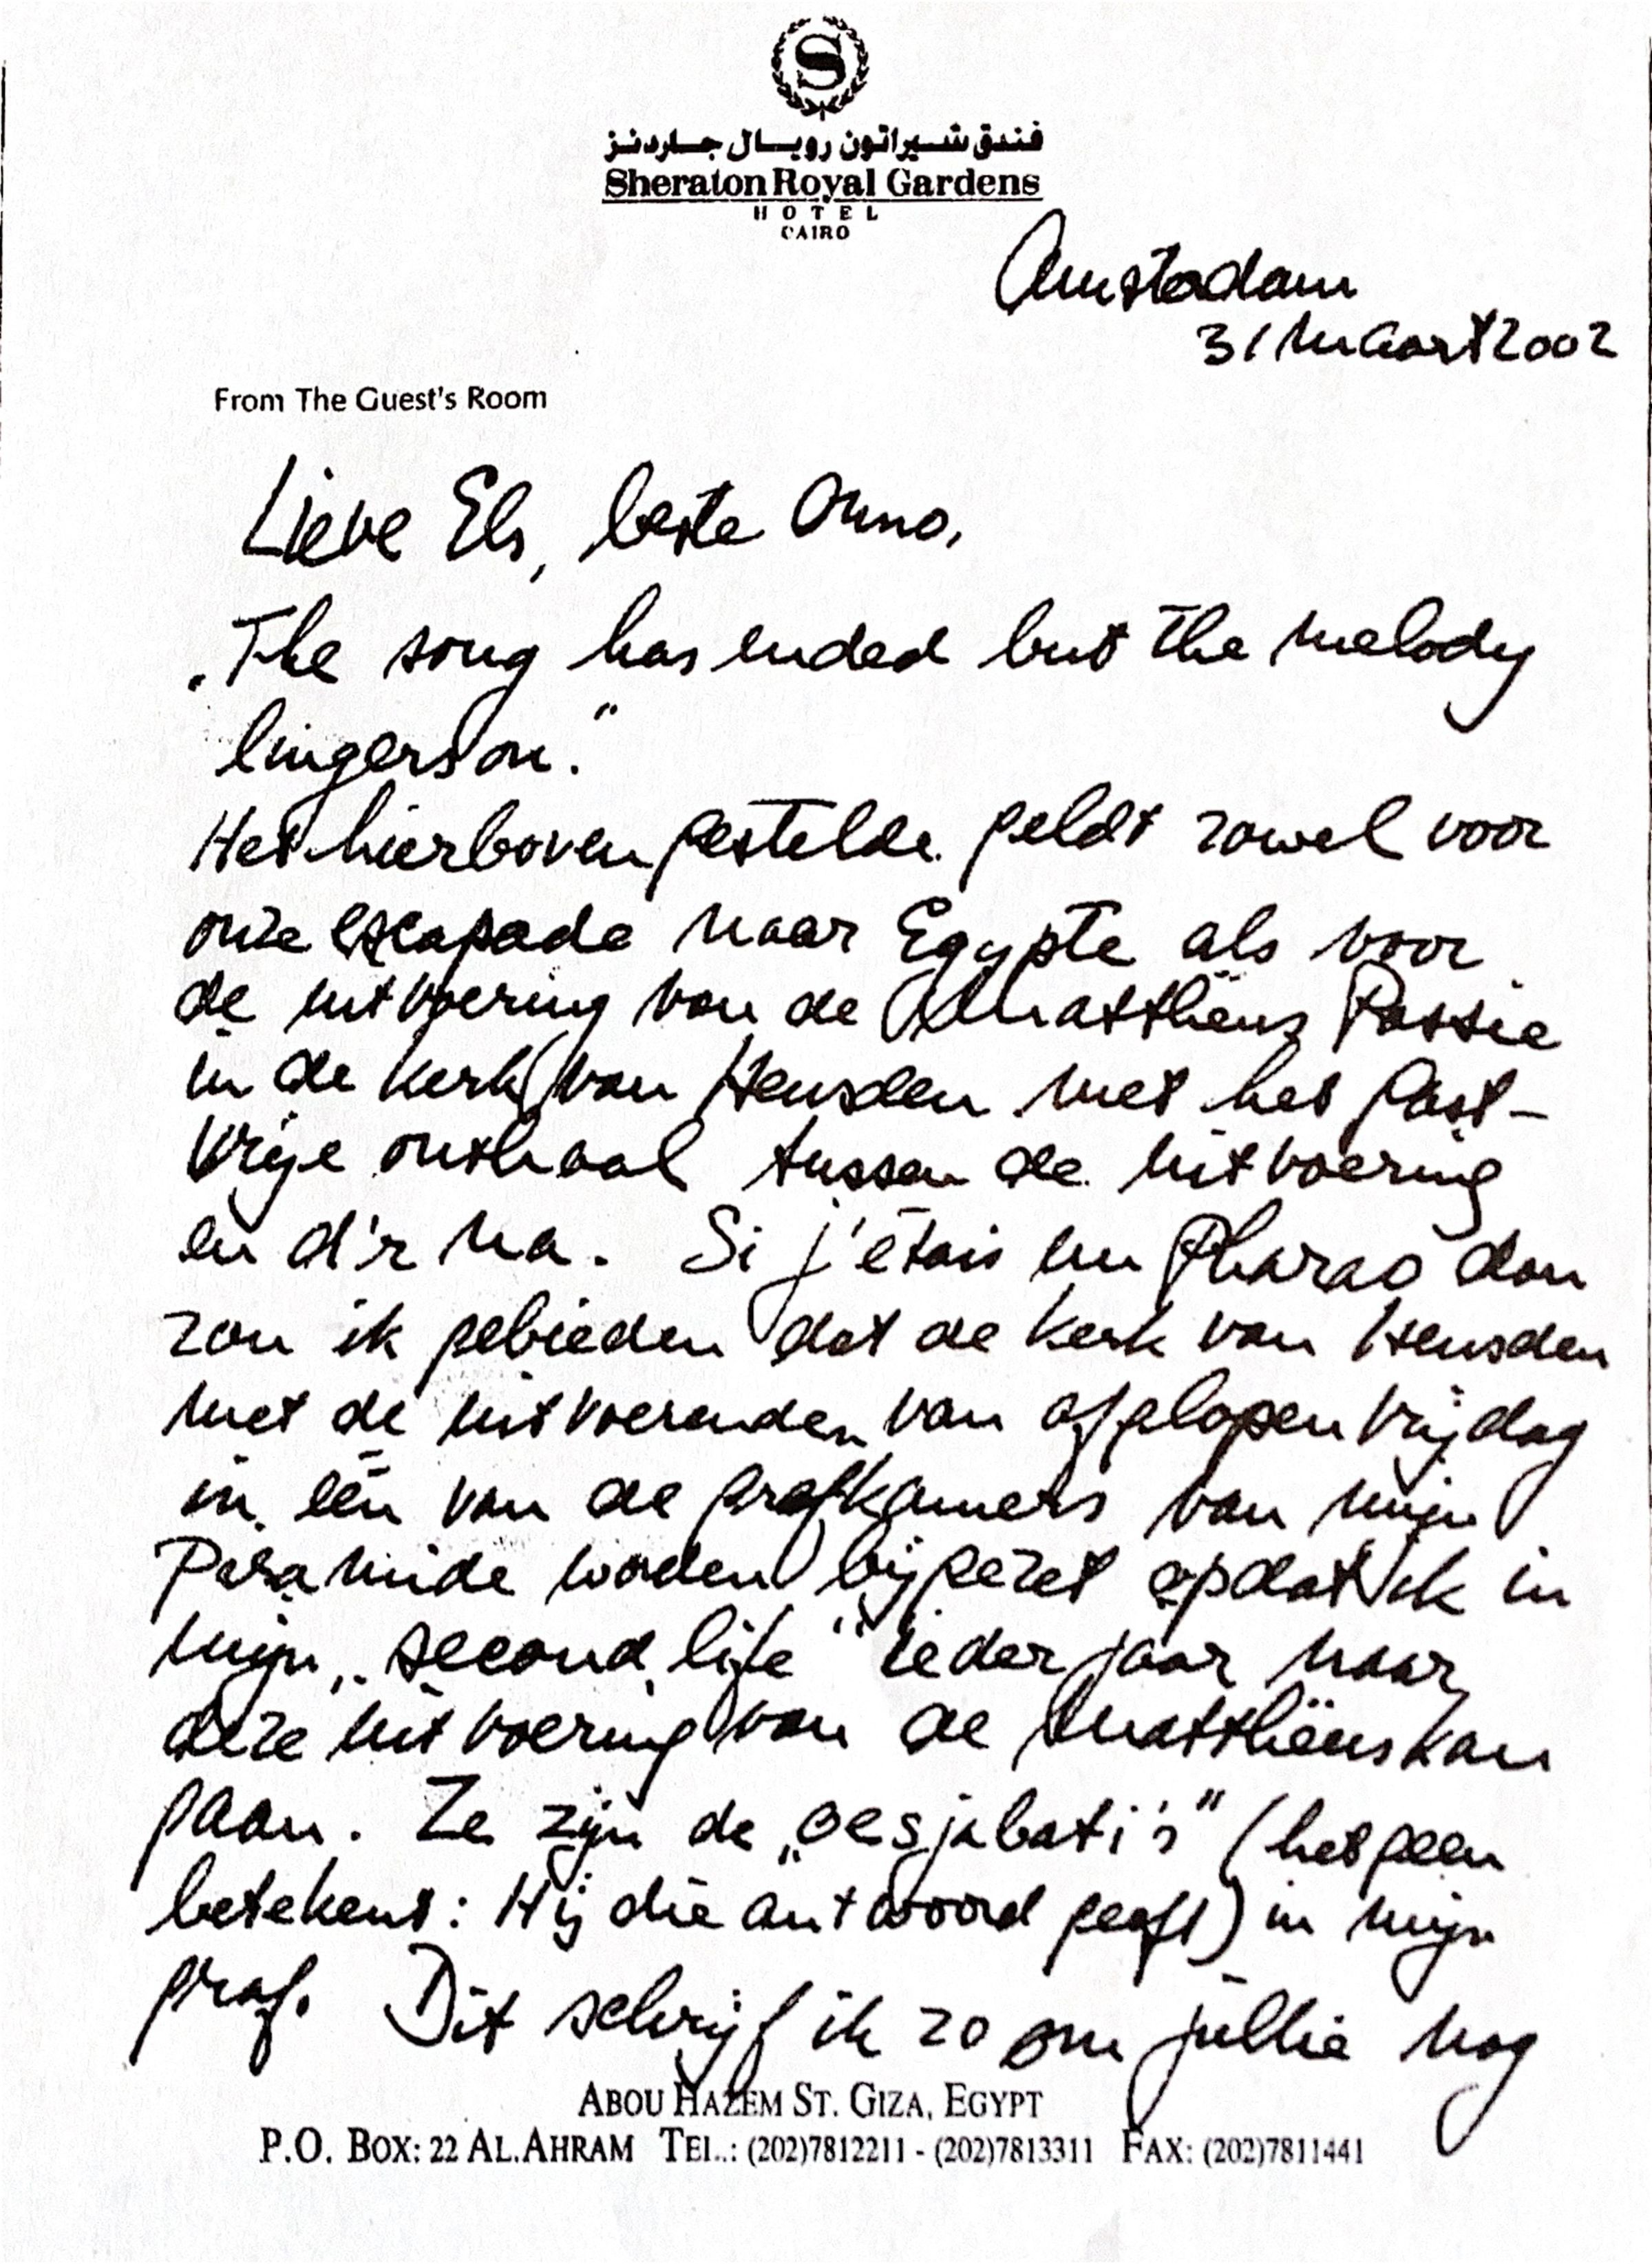 S
فندق شيراتون رويال جاردنز
Sheraton Royal Gardens
HOTEL
CAIRO
Amsterdam
31 Maart 2002
From The Guest's Room
Lieve Els, beste Onno,
„The song has ended but the melody
lingers on."
Het hierboven gestelde geldt zowel voor
onze escapade naar Egypte als voor
de uitvoering van de Matthëus Passie
in de kerk van Heusden met het gast-
vrije onthaal tussen de uitvoering
en d'r na. Si j'étais un Pharao dan
zou ik gebieden dat de kerk van Heusden
met de uitvoerenden van afgelopen vrijdag
in één van de grafkamers van mijn
Piramide worden bijgezet opdat ik in
mijn „second life" ieder jaar naar
deze uitvoering van de Matthëus kan
gaan. Ze zijn de „oesjabati's" (hetgeen
betekent: Hij die antwoord geeft) in mijn
graf. Dit schrijf ik zo om jullie nog
ABOU HAZEM ST. GIZA, EGYPT
P.O. BOX: 22 AL.AHRAM TEL.: (202)7812211 - (202)7813311 FAX: (202)7811441